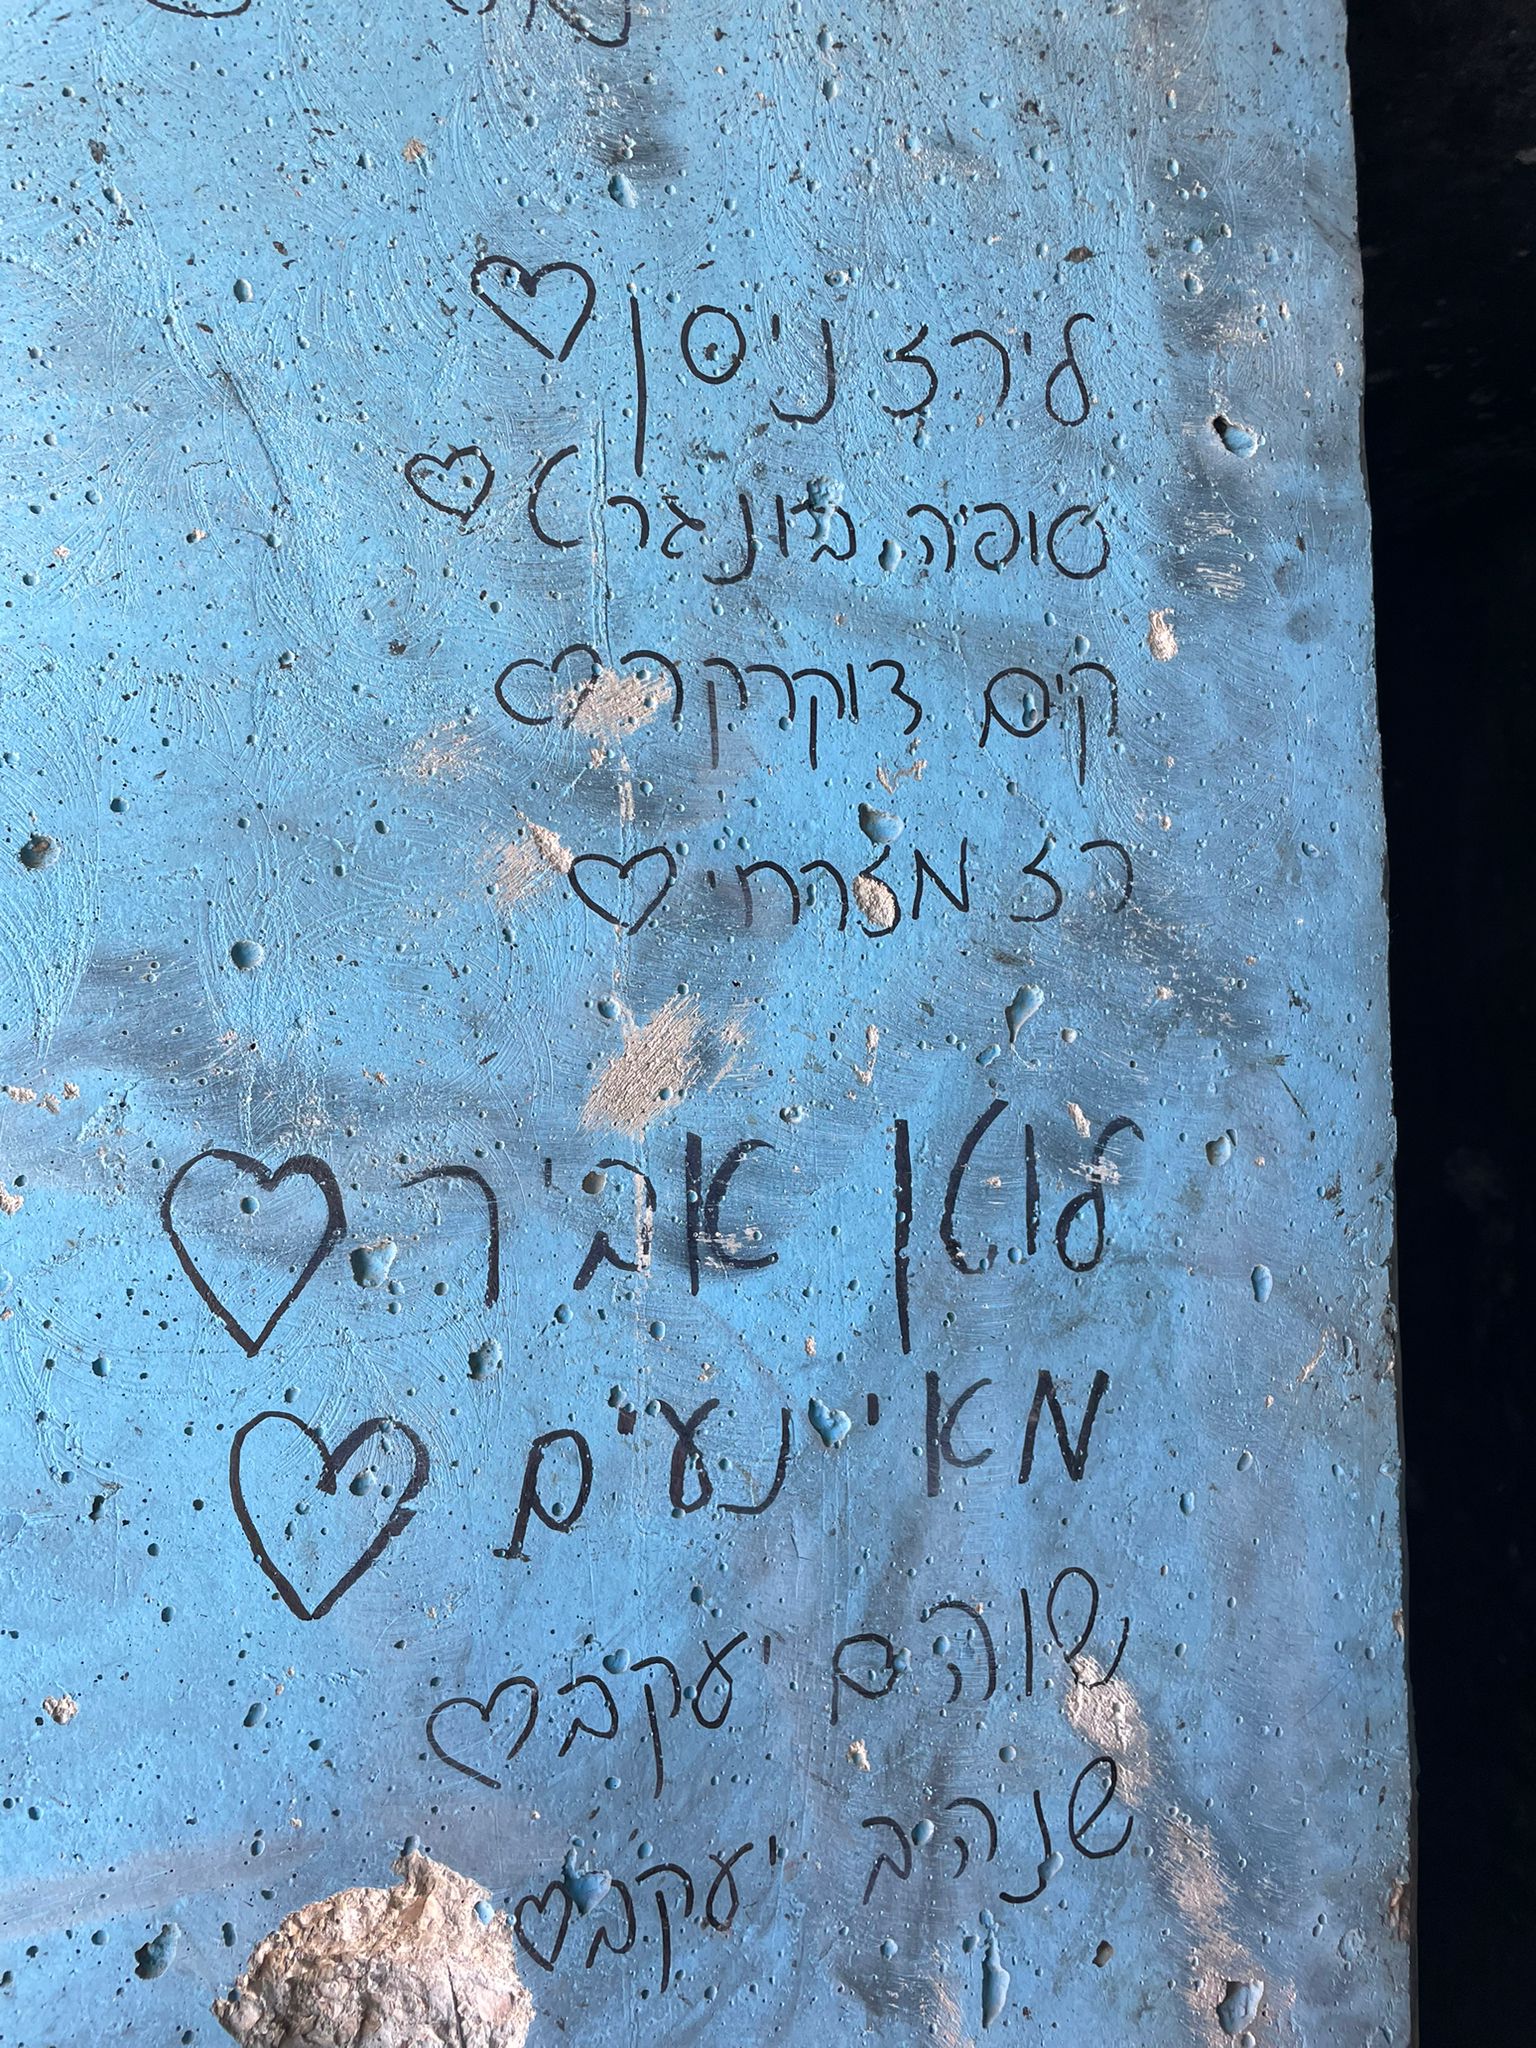 לירז ניסן
סופיה בונגרט
קים דוקרקר
רז מזרחי
לוטן אביר
מאי נעים
שוהם יעקב
שנהב יעקב